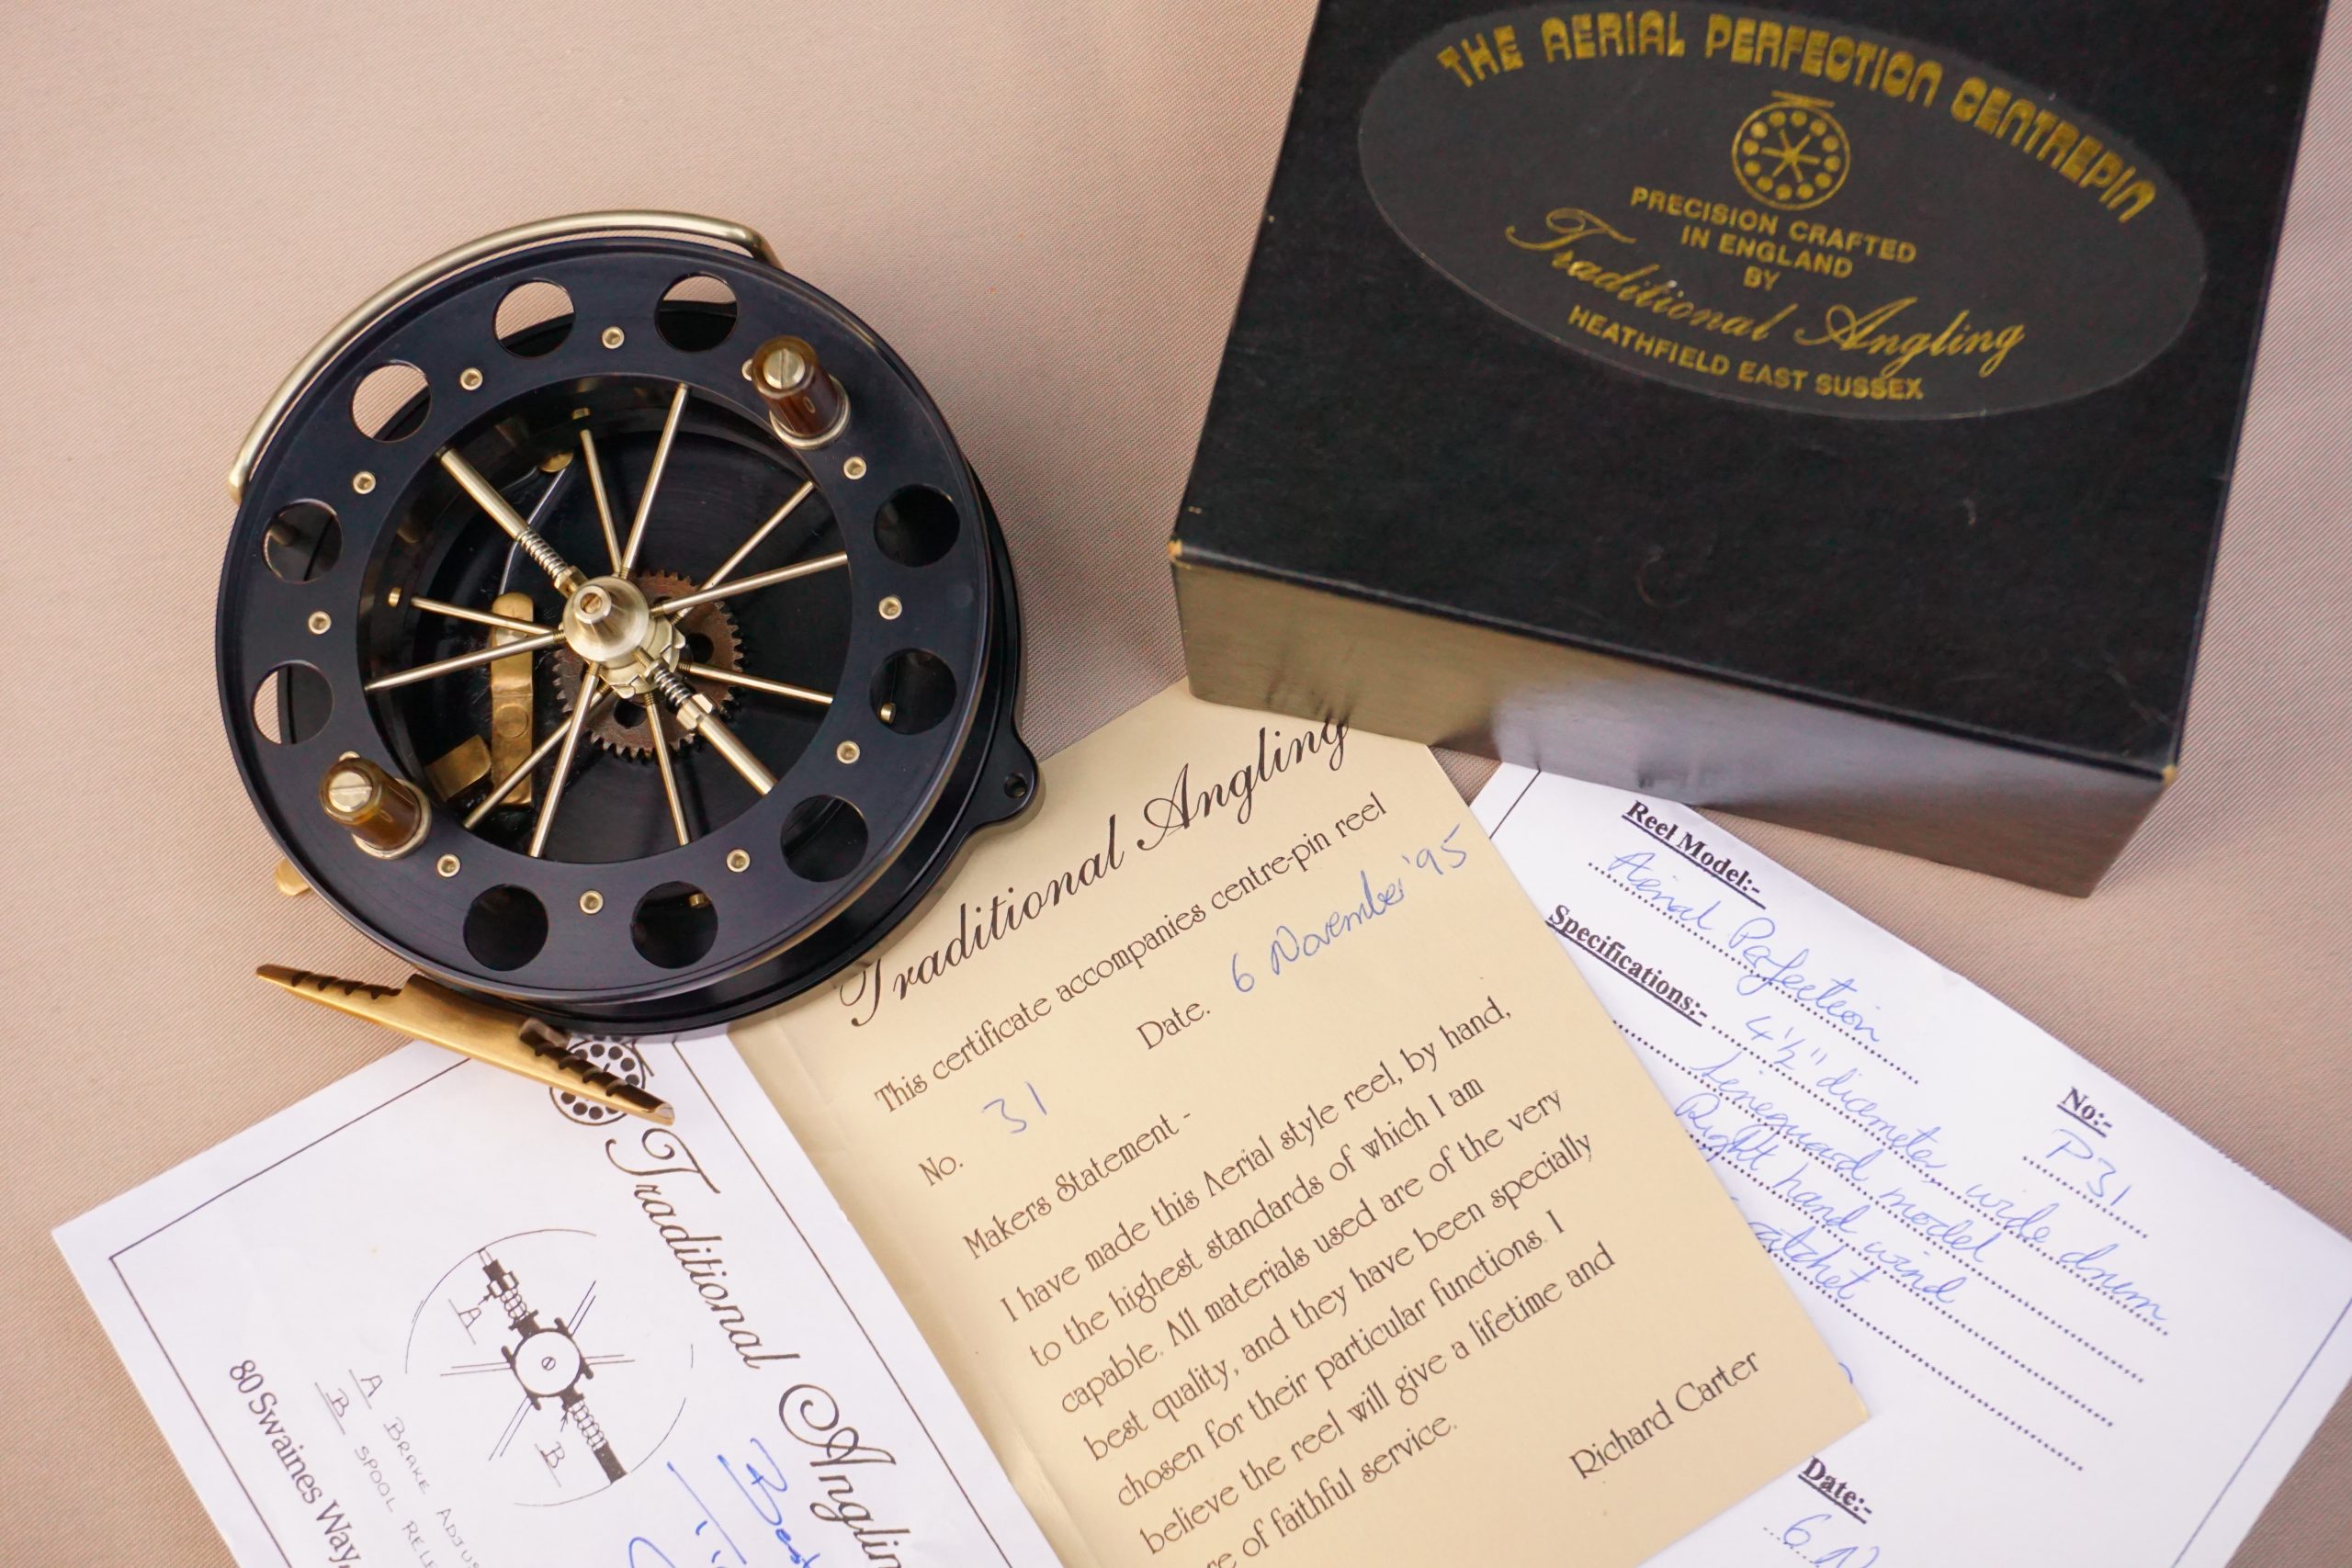 THE AERIAL PERFECTION CENTREPIN
PRECISION CRAFTED
IN ENGLAND
BY
Traditional Angling
HEATHFIELD EAST SUSSEX
Traditional Angling
This certificate accompanies centre-pin reel
No. 31
Date. 6 November '95
Makers Statement -
I have made this Aerial style reel, by hand,
to the highest standards of which I am
capable. All materials used are of the very
best quality, and they have been specially
chosen for their particular functions. I
believe the reel will give a lifetime and
of faithful service.
Richard Carter
Reel Model:-
Aerial Perfection
No:-
P31
Specifications:-
4½" diameter, wide drum
Lineguard model
Right hand wind
Date:-
6
Traditional
80 Swaines Way,
A
B
A BRAKE
B SPOOL
Best